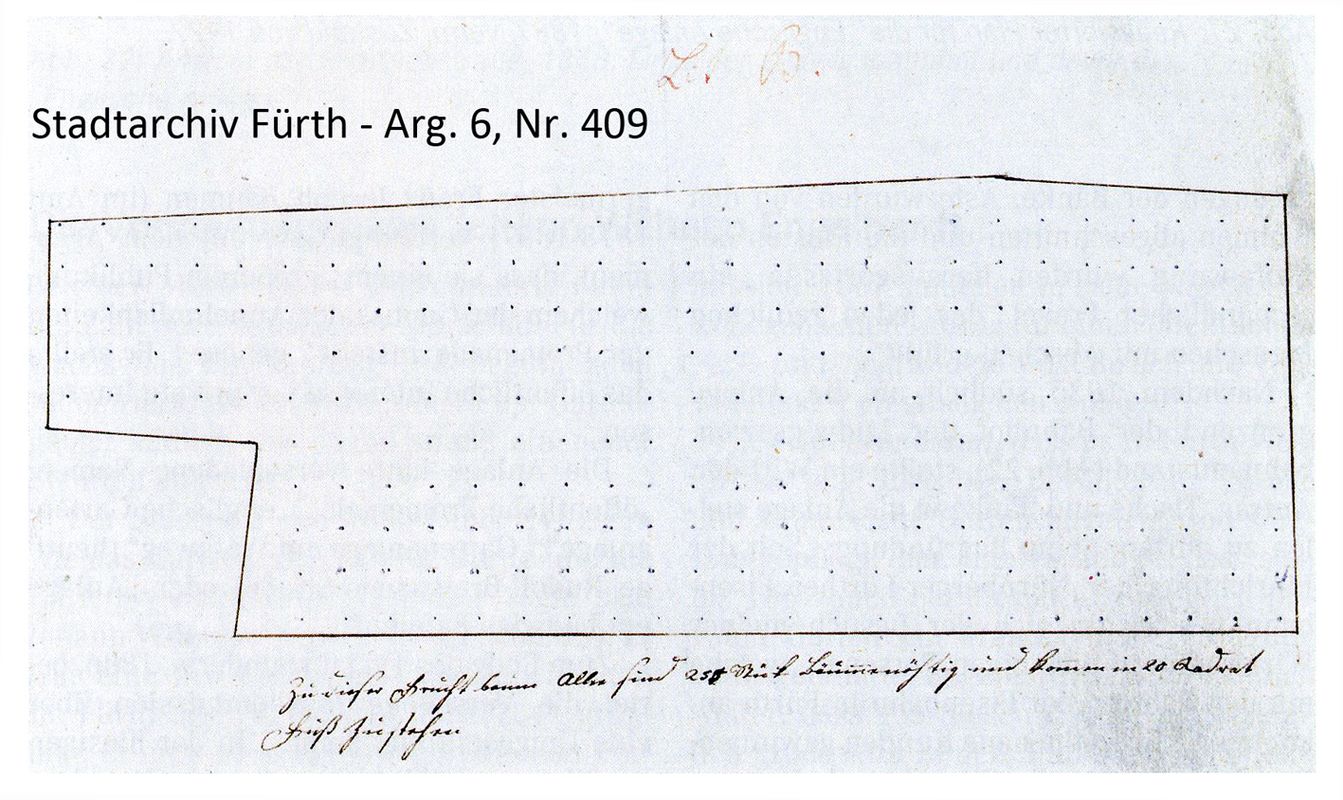 Li. B.
Stadtarchiv Fürth - Arg. 6, Nr. 409
Zu dieser Frucht baum Allee sind Stück Bäume nöhtig und komen in 20 Qadrat
Fuß zu stehen